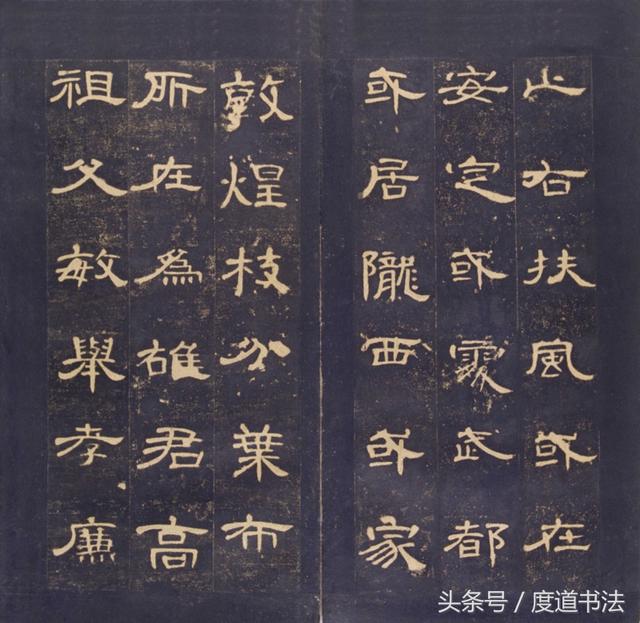 止右扶風或在
安定或處武都
或居隴西或家
敦煌枝分葉布
所在為雄君高
祖父敏舉孝廉
头条号/度道书法